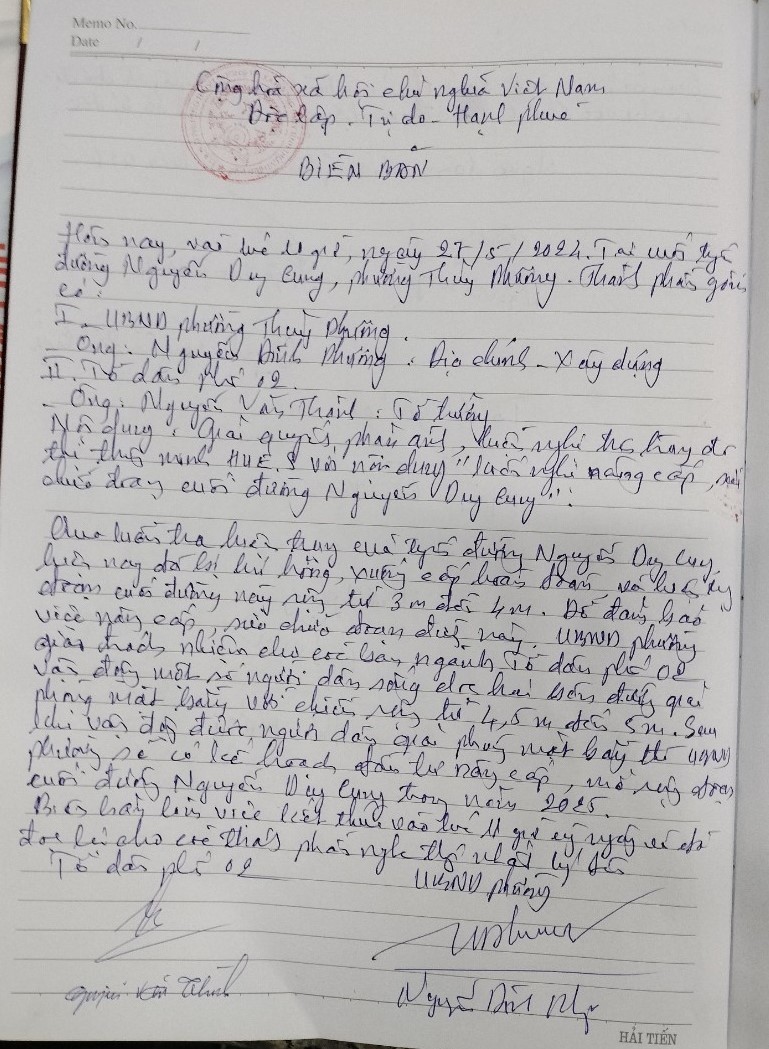 Memo No.
Date / /
Cộng hoà xã hội chủ nghĩa Việt Nam
Độc lập - Tự do - Hạnh phúc
BIÊN BẢN
Hôm nay, vào lúc giờ, ngày 27/5/2024. Tại cuối tuyến
đường Nguyễn Duy Cung, phường Thuỷ Phương. Thành phần gồm
có:
I - UBND phường Thuỷ Phương.
- Ông: Nguyễn Đình Phương: Địa chính - Xây dựng
II. Tổ dân phố 02.
- Ông: Nguyễn Văn Thành: Tổ trưởng
Nội dung: Giải quyết, phản ánh, kiến nghị trang đô
thị thông minh HUE.S với nội dung "kiến nghị nâng cấp, sửa
chữa đoạn cuối đường Nguyễn Duy Cung":
Qua kiểm tra hiện trạng của tuyến đường Nguyễn Duy Cung
hiện nay đã bị hư hỏng, xuống cấp hoàn toàn, và
đoạn cuối đường này rộng từ 3m đến 4m. Để đảm bảo
việc nâng cấp, sửa chữa đoạn đường này. UBND phường
giao trách nhiệm cho các ban ngành, Tổ dân phố 02
vận động một số người dân sống dọc hai bên đường giải
phóng mặt bằng với chiều rộng từ 4,5m đến 5m. Sau
khi vận động được người dân giải phóng mặt bằng thì UBND
phường sẽ có kế hoạch đầu tư nâng cấp, mở rộng đoạn
cuối đường Nguyễn Duy Cung trong năm 2025.
Biên bản làm việc kết thúc vào lúc giờ cùng ngày và đã
đọc lại cho các thành phần nghe thống nhất ký tên
Tổ dân phố 02
UBND phường
Nguyễn Văn Thành
Nguyễn Đình
HẢI TIẾN